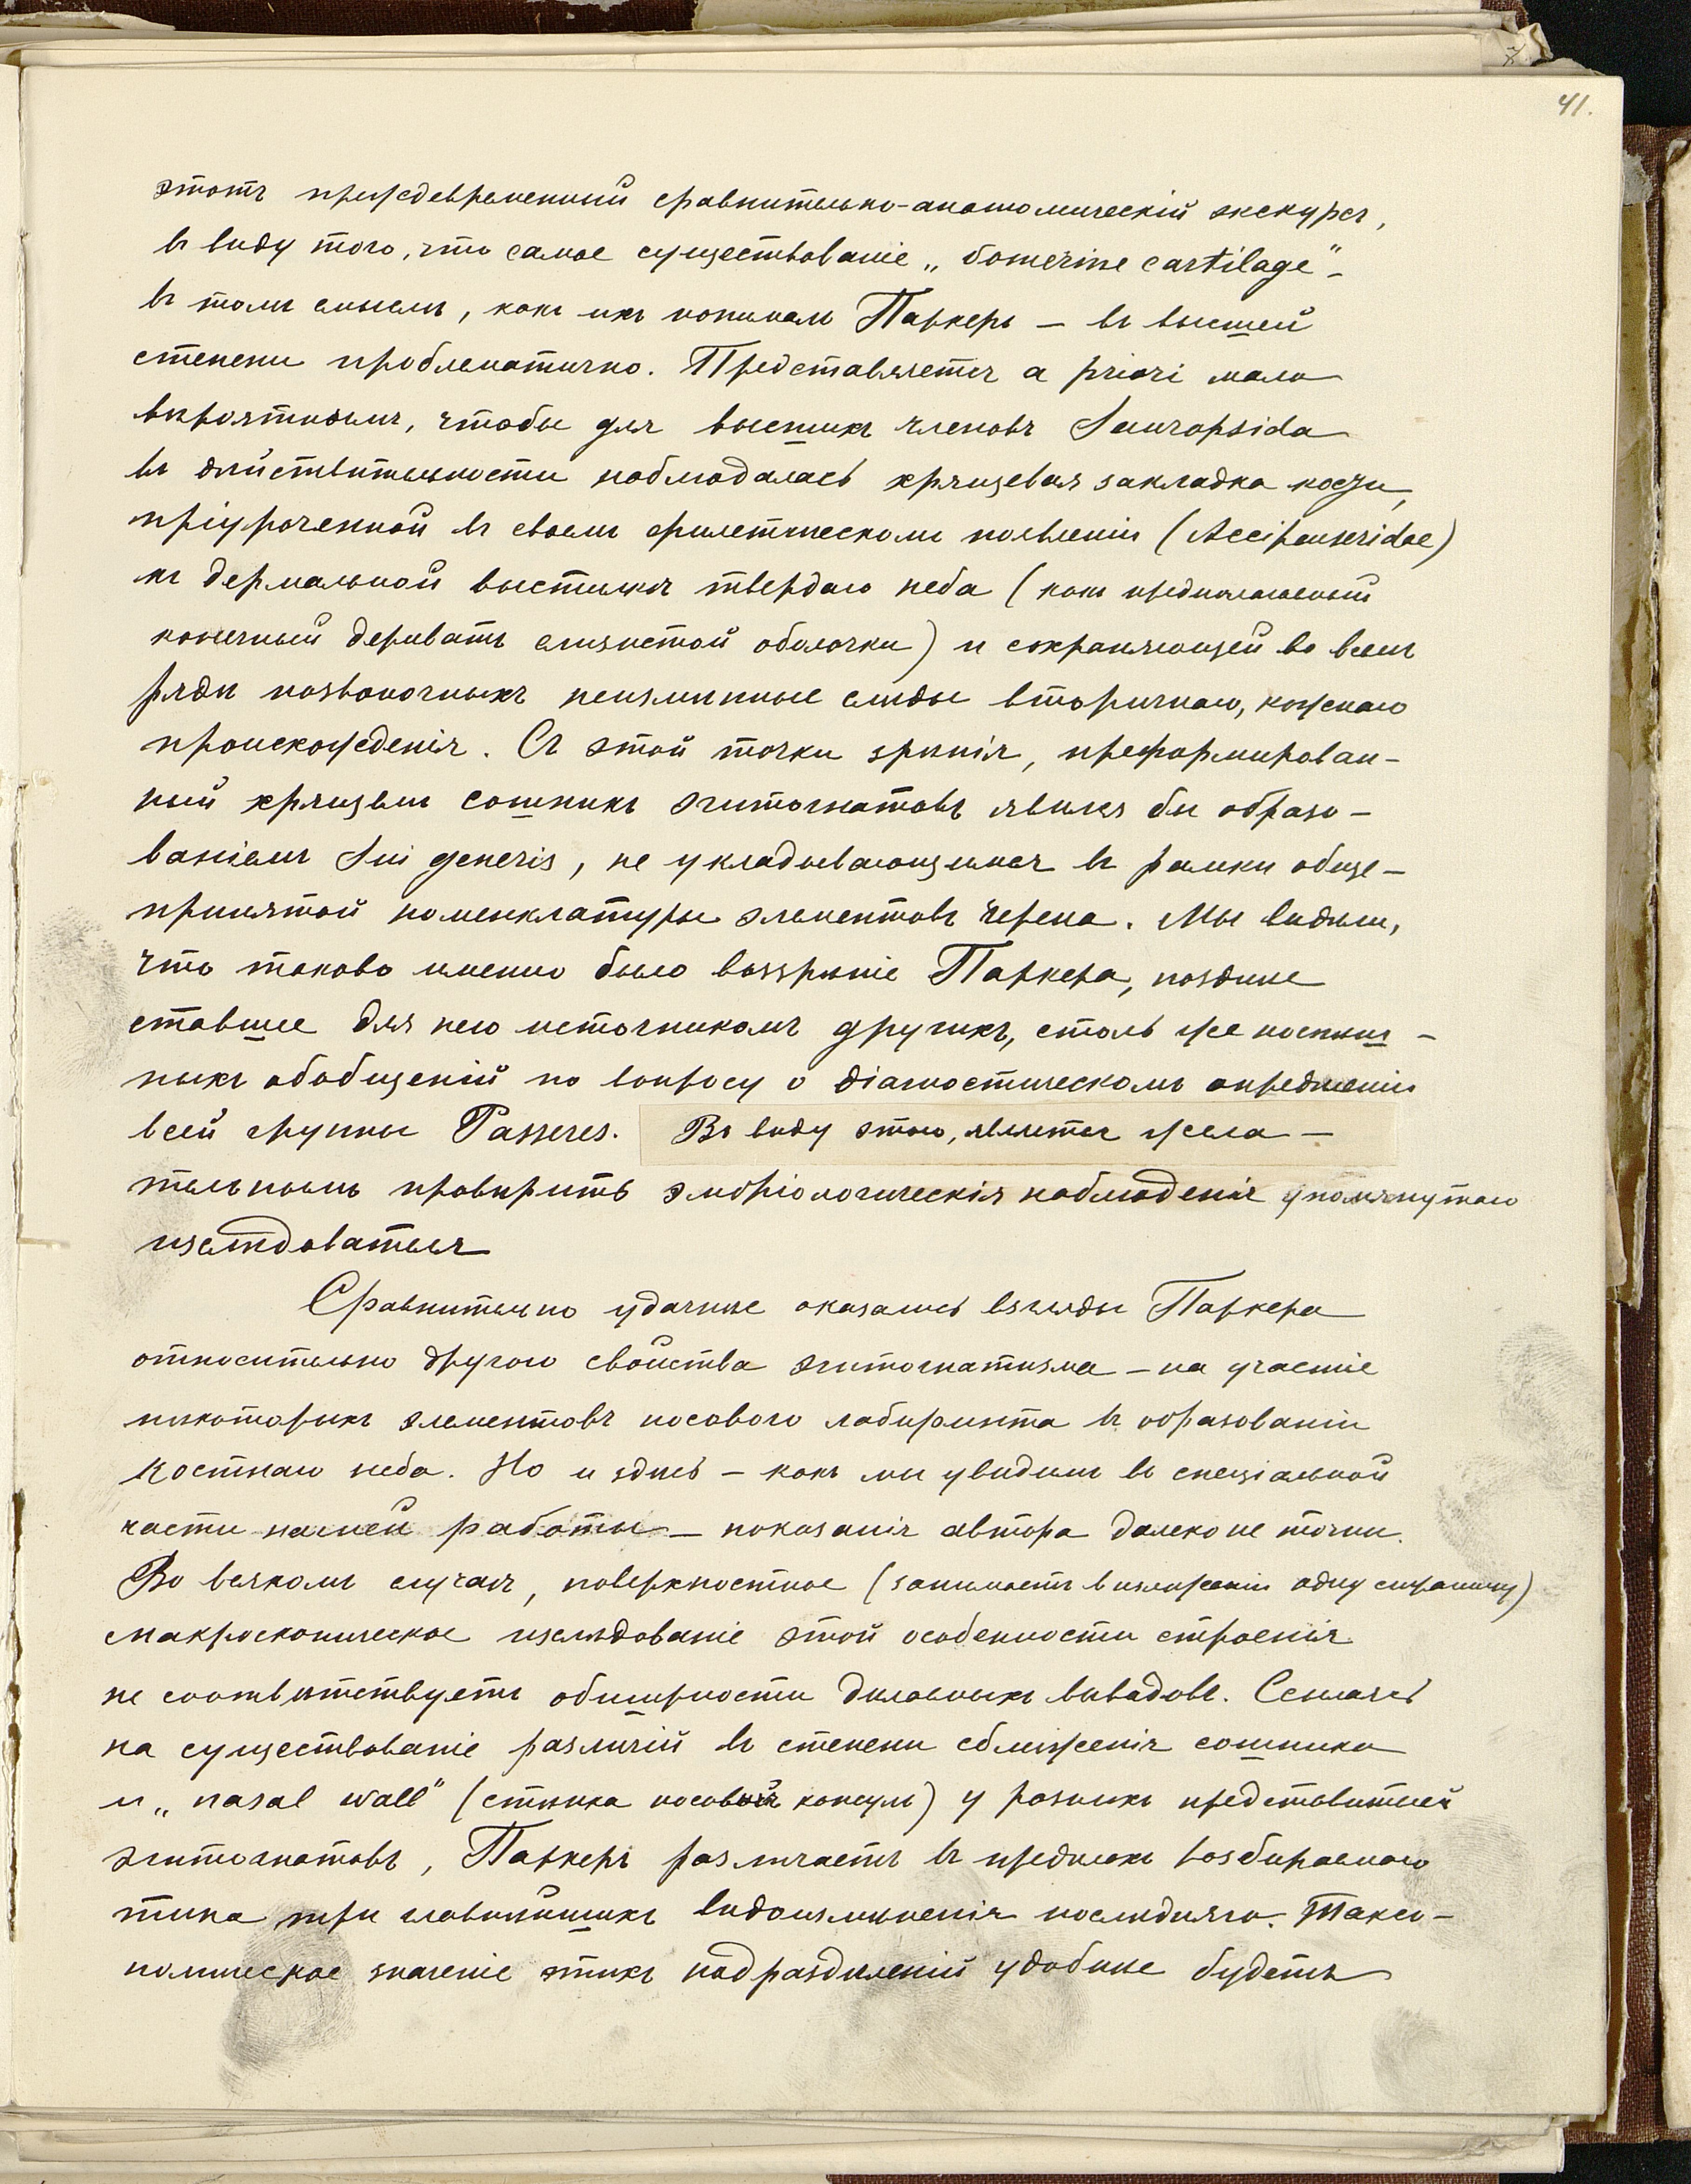 41.
этотъ преждевременный сравнительно-анатомическій экскурсъ,
въ виду того, что самое существованіе „vomerine cartilage"-
въ томъ смыслѣ, какъ ихъ понималъ Паркеръ — въ высшей
степени проблематично. Представляется a priori мало
вѣроятнымъ, чтобы для высшихъ членовъ Sauropsida
въ дѣйствительности наблюдалась хрящевая закладка кости,
пріуроченной въ своемъ филетическомъ появленіи (Accipenseridae)
къ дермальной выстилкѣ твердаго неба (какъ предположенный
конечный дериватъ слизистой оболочки) и сохраняющей во всемъ
ряду позвоночныхъ неизмѣнные слѣды вторичнаго, кожнаго
происхожденія. Съ этой точки зрѣнія, преформирован-
ный хрящемъ сошникъ эгитогнатовъ явился бы образо-
ваніемъ sui generis, не укладывающимся въ рамки обще-
принятой номенклатуры элементовъ черепа. Мы видѣли,
что таково именно было воззрѣніе Паркера, позднѣе
ставшее для него источникомъ другихъ, столь же поспѣш-
ныхъ обобщеній по вопросу о діагностическомъ опредѣленіи
всей группы Passeres. Въ виду этого, является жела-
тельнымъ провѣрить эмбріологическія наблюденія упомянутаго
изслѣдователя
Сравнительно удачнѣе оказались взгляды Паркера
относительно другого свойства эгитогнатизма — на участіе
нѣкоторыхъ элементовъ носового лабиринта въ образованіи
костнаго неба. Но и здѣсь — какъ мы увидимъ въ спеціальной
части нашей работы — показанія автора далеко не точны.
Во всякомъ случаѣ, поверхностное (занимаетъ въ изложеніи одну страницу)
макроскопическое изслѣдованіе этой особенности строенія
не соотвѣтствуетъ обширности дѣлаемыхъ выводовъ. Ссылаясь
на существованіе различій въ степени сближенія сошника
и „nasal wall" (стѣнка носовой капсулы) у разныхъ представителей
эгитогнатовъ, Паркеръ различаетъ въ предѣлахъ разбираемаго
типа три главнѣйшихъ видоизмѣненія послѣдняго. Таксо-
номическое значеніе этихъ подраздѣленій удобнѣе будетъ